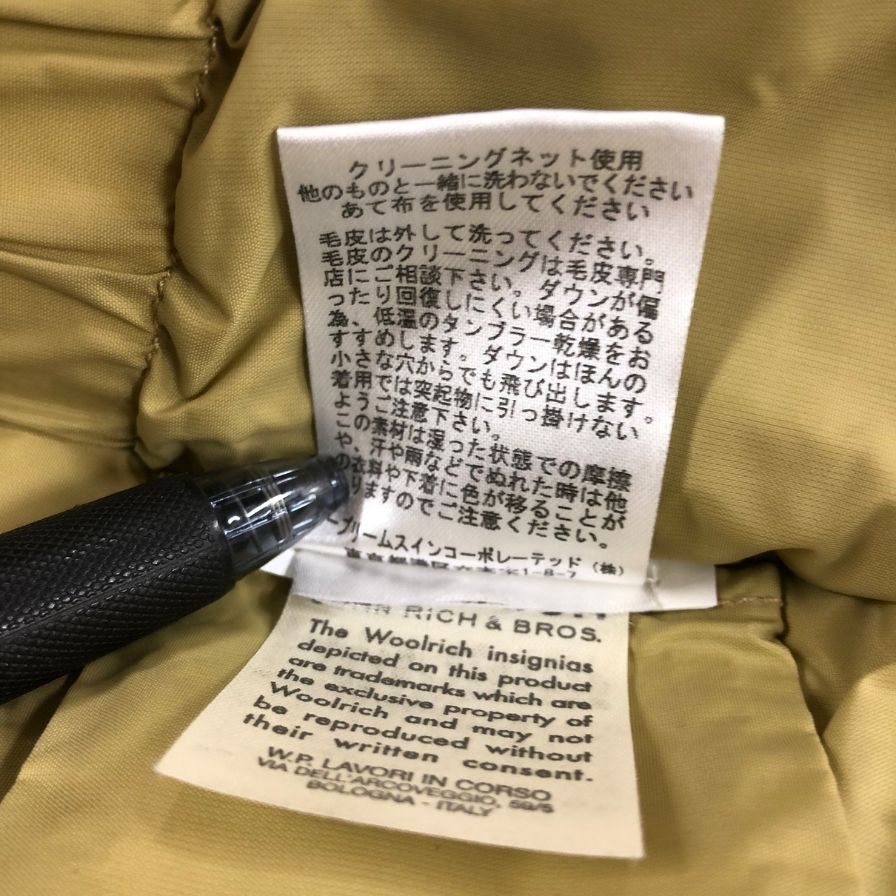 クリーニングネット使用
他のものと一緒に洗わないでください
あて布を使用してください
毛皮は外して洗ってください。
毛皮のクリーニングは毛皮専門
店にご相談下さい。ダウンが偏
ったり回復しにくい場合がある
為、低温のタンブラー乾燥をお
すすめします。ダウンはほんの
小さな穴からでも飛び出します。
着用では突起物に引っ掛けない
ようご注意下さい。
この素材は湿った状態での摩擦
や、汗や雨などでぬれた時は他
の衣料や下着に色が移ることが
りますのでご注意ください。
ーブリームスインコーポレーテッド(株)
1-8-7
RICH & BROS.
The Woolrich insignias
depicted on this product
are trademarks which are
the exclusive property of
Woolrich and may not
be reproduced without
their written consent.
W.P. LAVORI IN CORSO
VIA DELL'ARCOVEGGIO, 59/5
BOLOGNA - ITALY